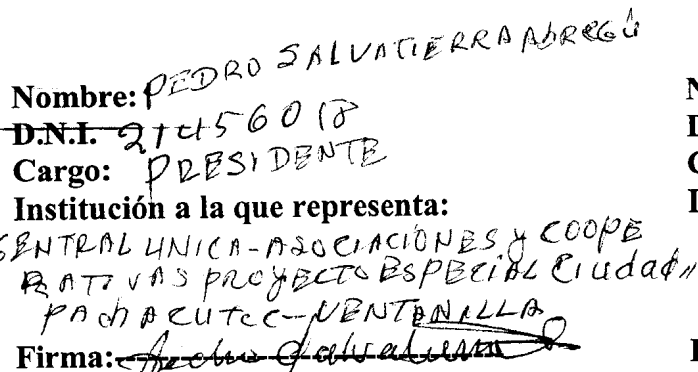 Nombre: PEDRO SALVATIERRA Abregú
D.N.I. 21456018
Cargo: PRESIDENTE
Institución a la que representa:
SENTRAL UNICA - ASOCIACIONES Y COOPE
RATIVAS PROYECTO ESPECIAL Ciudad
PACHACUTEC - VENTANILLA
Firma: Pedro Salvatierra